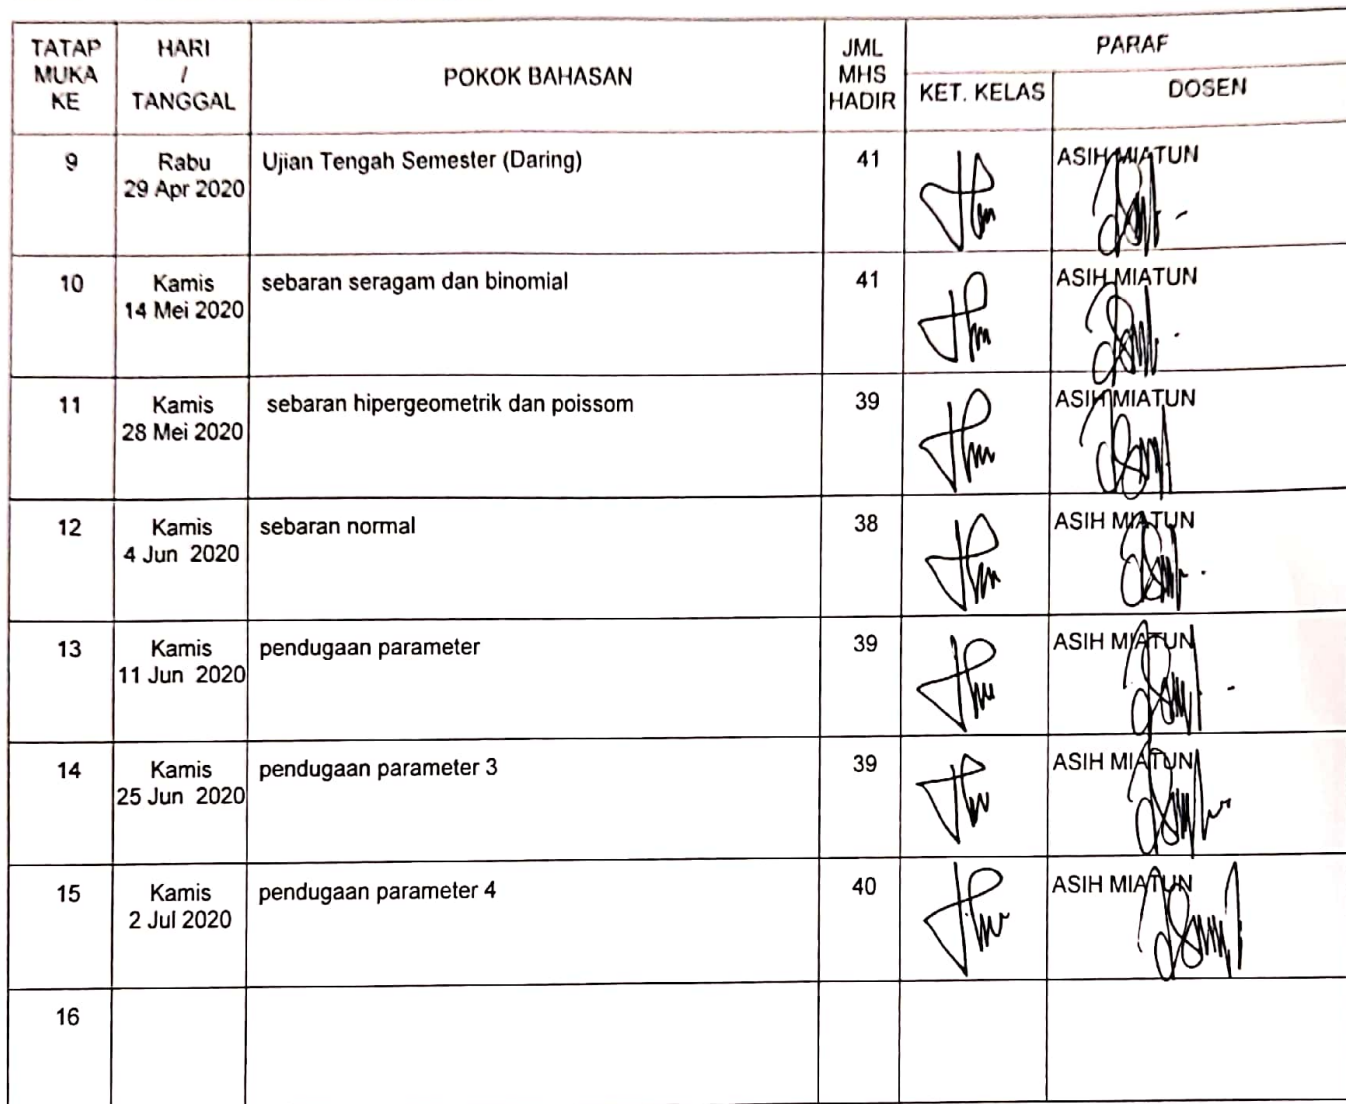 TATAP MUKA KE
HARI / TANGGAL
POKOK BAHASAN
JML MHS HADIR
PARAF
KET. KELAS
DOSEN
9
Rabu
29 Apr 2020
Ujian Tengah Semester (Daring)
41
ASIH MIATUN
10
Kamis
14 Mei 2020
sebaran seragam dan binomial
41
ASIH MIATUN
11
Kamis
28 Mei 2020
sebaran hipergeometrik dan poissom
39
ASIH MIATUN
12
Kamis
4 Jun 2020
sebaran normal
38
ASIH MIATUN
13
Kamis
11 Jun 2020
pendugaan parameter
39
ASIH MIATUN
14
Kamis
25 Jun 2020
pendugaan parameter 3
39
ASIH MIATUN
15
Kamis
2 Jul 2020
pendugaan parameter 4
40
ASIH MIATUN
16